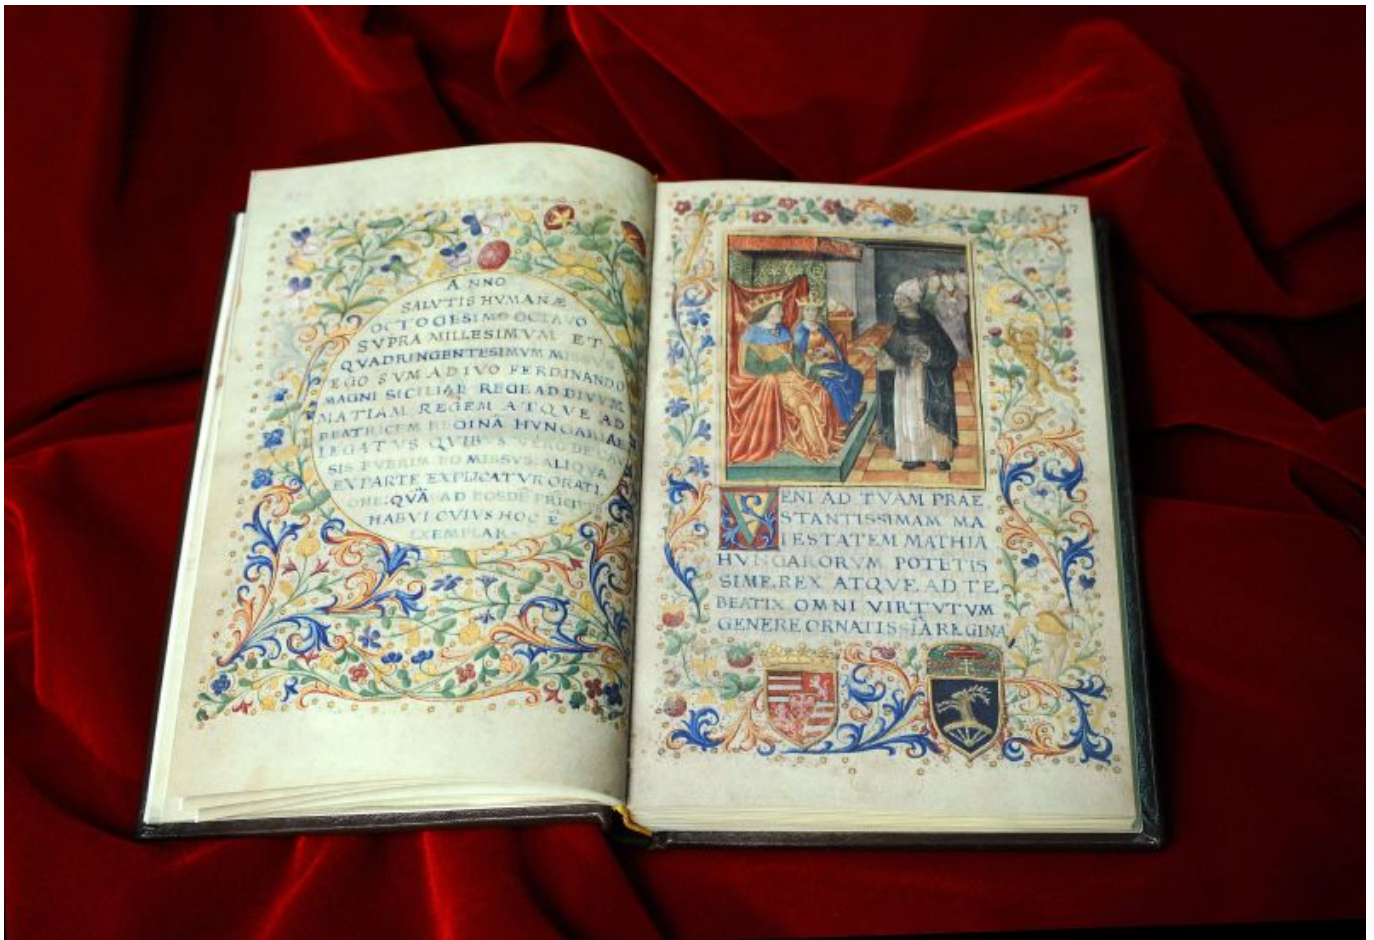 ANNO
SALVTIS HVMANÆ
OCTOGESIMO OCTAVO
SVPRA MILLESIMVM ET
QVADRINGENTESIMVM MISSVS
EGO SVM A DIVO FERDINANDO
MAGNI SICILIAE REGE AD DIVVM
MATIAM REGEM ATQVE AD
BEATRICEM REGINA HVNGARIAE
LEGATVS QVIBVS VERO DE CAV
SIS FVERIM EO MISSVS: ALIQVA
EX PARTE EXPLICATVR ORATI
ONE: QVĀ AD EOSDĒ
HABVI CVIVS HOC Ē
EXEMPLAR
17
VENI AD TVAM PRAE
STANTISSIMAM MA
IESTATEM MATHIA
HVNGARORVM POTETIS
SIME.REX ATQVE AD TE
BEATIX OMNI VIRTVTVM
GENERE ORNATISSIĀ REGINA